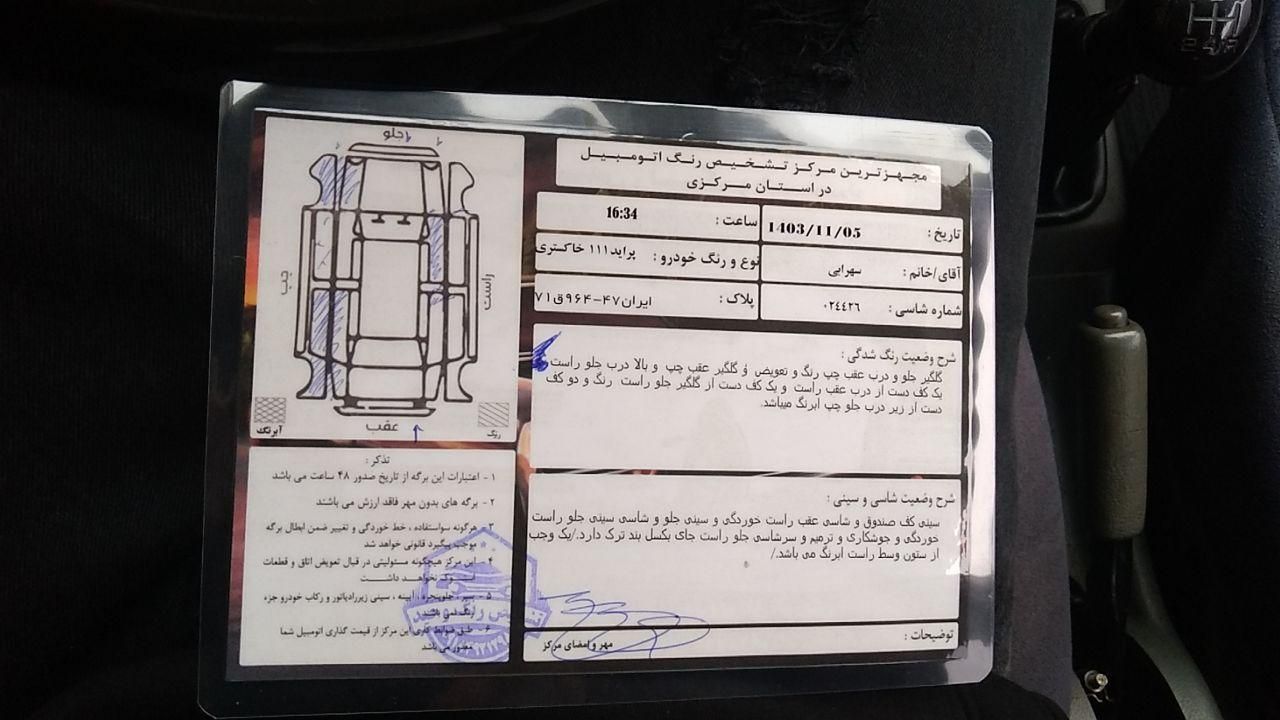 مجهزترین مرکز تشخیص رنگ اتومبیل
در استان مرکزی
تاریخ : 1403/11/05
ساعت : 16:34
آقای/خانم : سهرابی
نوع و رنگ خودرو : پراید۱۱۱ خاکستری
شماره شاسی : ۰۲۴۴۲۶
پلاک : ایران۴۷-۹۶۴ق۷۱
شرح وضعیت رنگ شدگی :
گلگیر جلو و درب عقب چپ رنگ و تعویض و گلگیر عقب چپ و بالا درب جلو راست
یک کف دست از درب عقب راست و یک کف دست از گلگیر جلو راست رنگ و دو کف
دست از زیر درب جلو چپ ابرنگ میباشد.
شرح وضعیت شاسی و سینی :
سینی کف صندوق و شاسی عقب راست خوردگی و سینی جلو و شاسی سینی جلو راست
خوردگی و جوشکاری و ترمیم و سرشاسی جلو راست جای بکسل بند ترک دارد./یک وجب
از ستون وسط راست ابرنگ می باشد./
توضیحات :
مهر و امضای مرکز
جلو
چپ
راست
عقب
آبرنگ
رنگ
تذکر :
۱ - اعتبارات این برگه از تاریخ صدور ۴۸ ساعت می باشد
۲ - برگه های بدون مهر فاقد ارزش می باشند
۳ - هرگونه سواستفاده ، خط خوردگی و تغییر ضمن ابطال برگه
موجب پیگیرد قانونی خواهد شد
۴ - این مرکز هیچگونه مسئولیتی در قبال تعویض اتاق و قطعات
استوک نخواهد داشت
۵ - سپر ، جلوپنجره ، آیینه ، سینی زیررادیاتور و رکاب خودرو جزء
رنگ نمی باشد
۶ - طبق ضوابط کاری این مرکز از قیمت گذاری اتومبیل شما
معذور می باشد
2 4 R